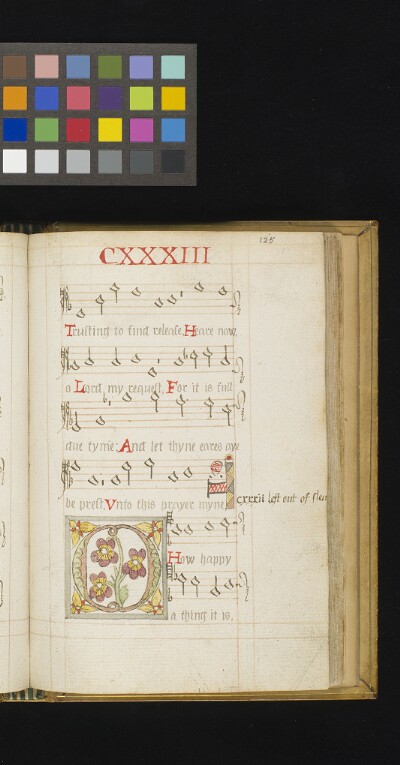 125
CXXXIII
Trusting to find release. Heare now,
o Lord, my request, For it is full
due tyme: And let thyne eares aye
be prest, Vnto this prayer myne.
cxxxii left out of
How happy
a thing it is,